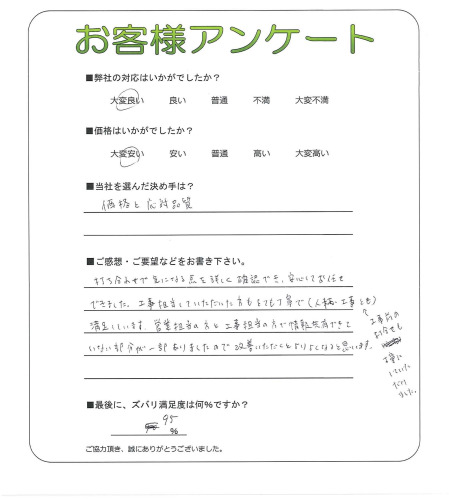 お客様アンケート
■弊社の対応はいかがでしたか？
大変良い　良い　普通　不満　大変不満
■価格はいかがでしたか？
大変安い　安い　普通　高い　大変高い
■当社を選んだ決め手は？
価格と応対品質
■ご感想・ご要望などをお書き下さい。
打ち合わせで気になる点を詳しく確認でき、安心してお任せ
できました。工事担当していただいた方もとても丁寧で（人柄・工事とも）
満足しています。営業担当の方と工事担当の方で情報共有できて
いない部分が一部ありましたので改善いただくとよりよくなると思います。
工事前の
お任せも
丁寧に
していた
だけ
ました。
■最後に、ズバリ満足度は何%ですか？
95
%
ご協力頂き、誠にありがとうございました。